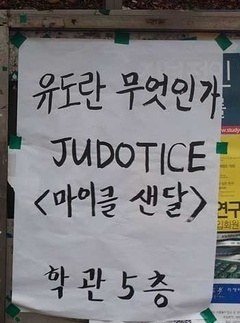 유도란 무엇인가
JUDOTICE
<마이클 샌달>
학관 5층
www.study
연구